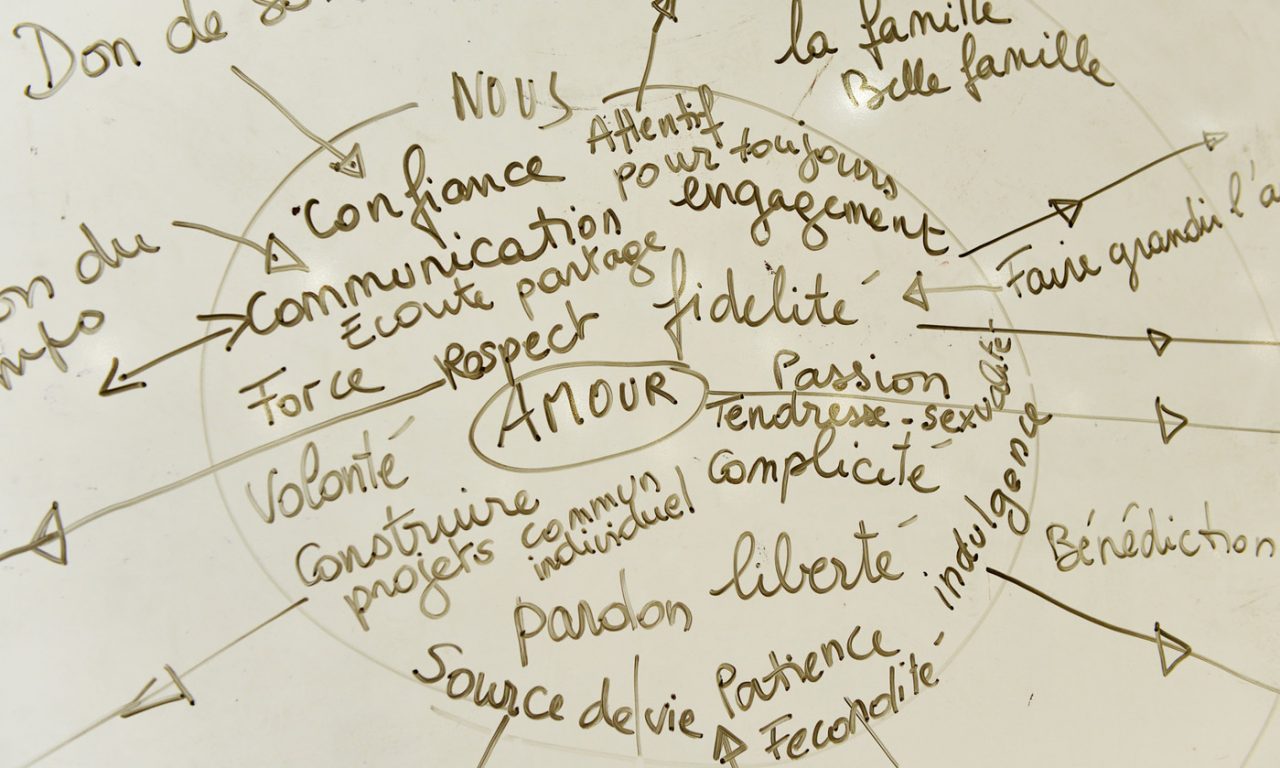 Don de
la famille
Belle famille
NOUS
Attentif
pour toujours
engagement
Confiance
Communication
Ecoute partage
du
Faire grandir
fidelité
Respect
Force
AMOUR
Passion
Tendresse - sexualité
Complicité
Volonté
Construire
projets commun
individuel
indulgence
Bénédiction
liberté
pardon
Source de vie
Patience
Fecondité